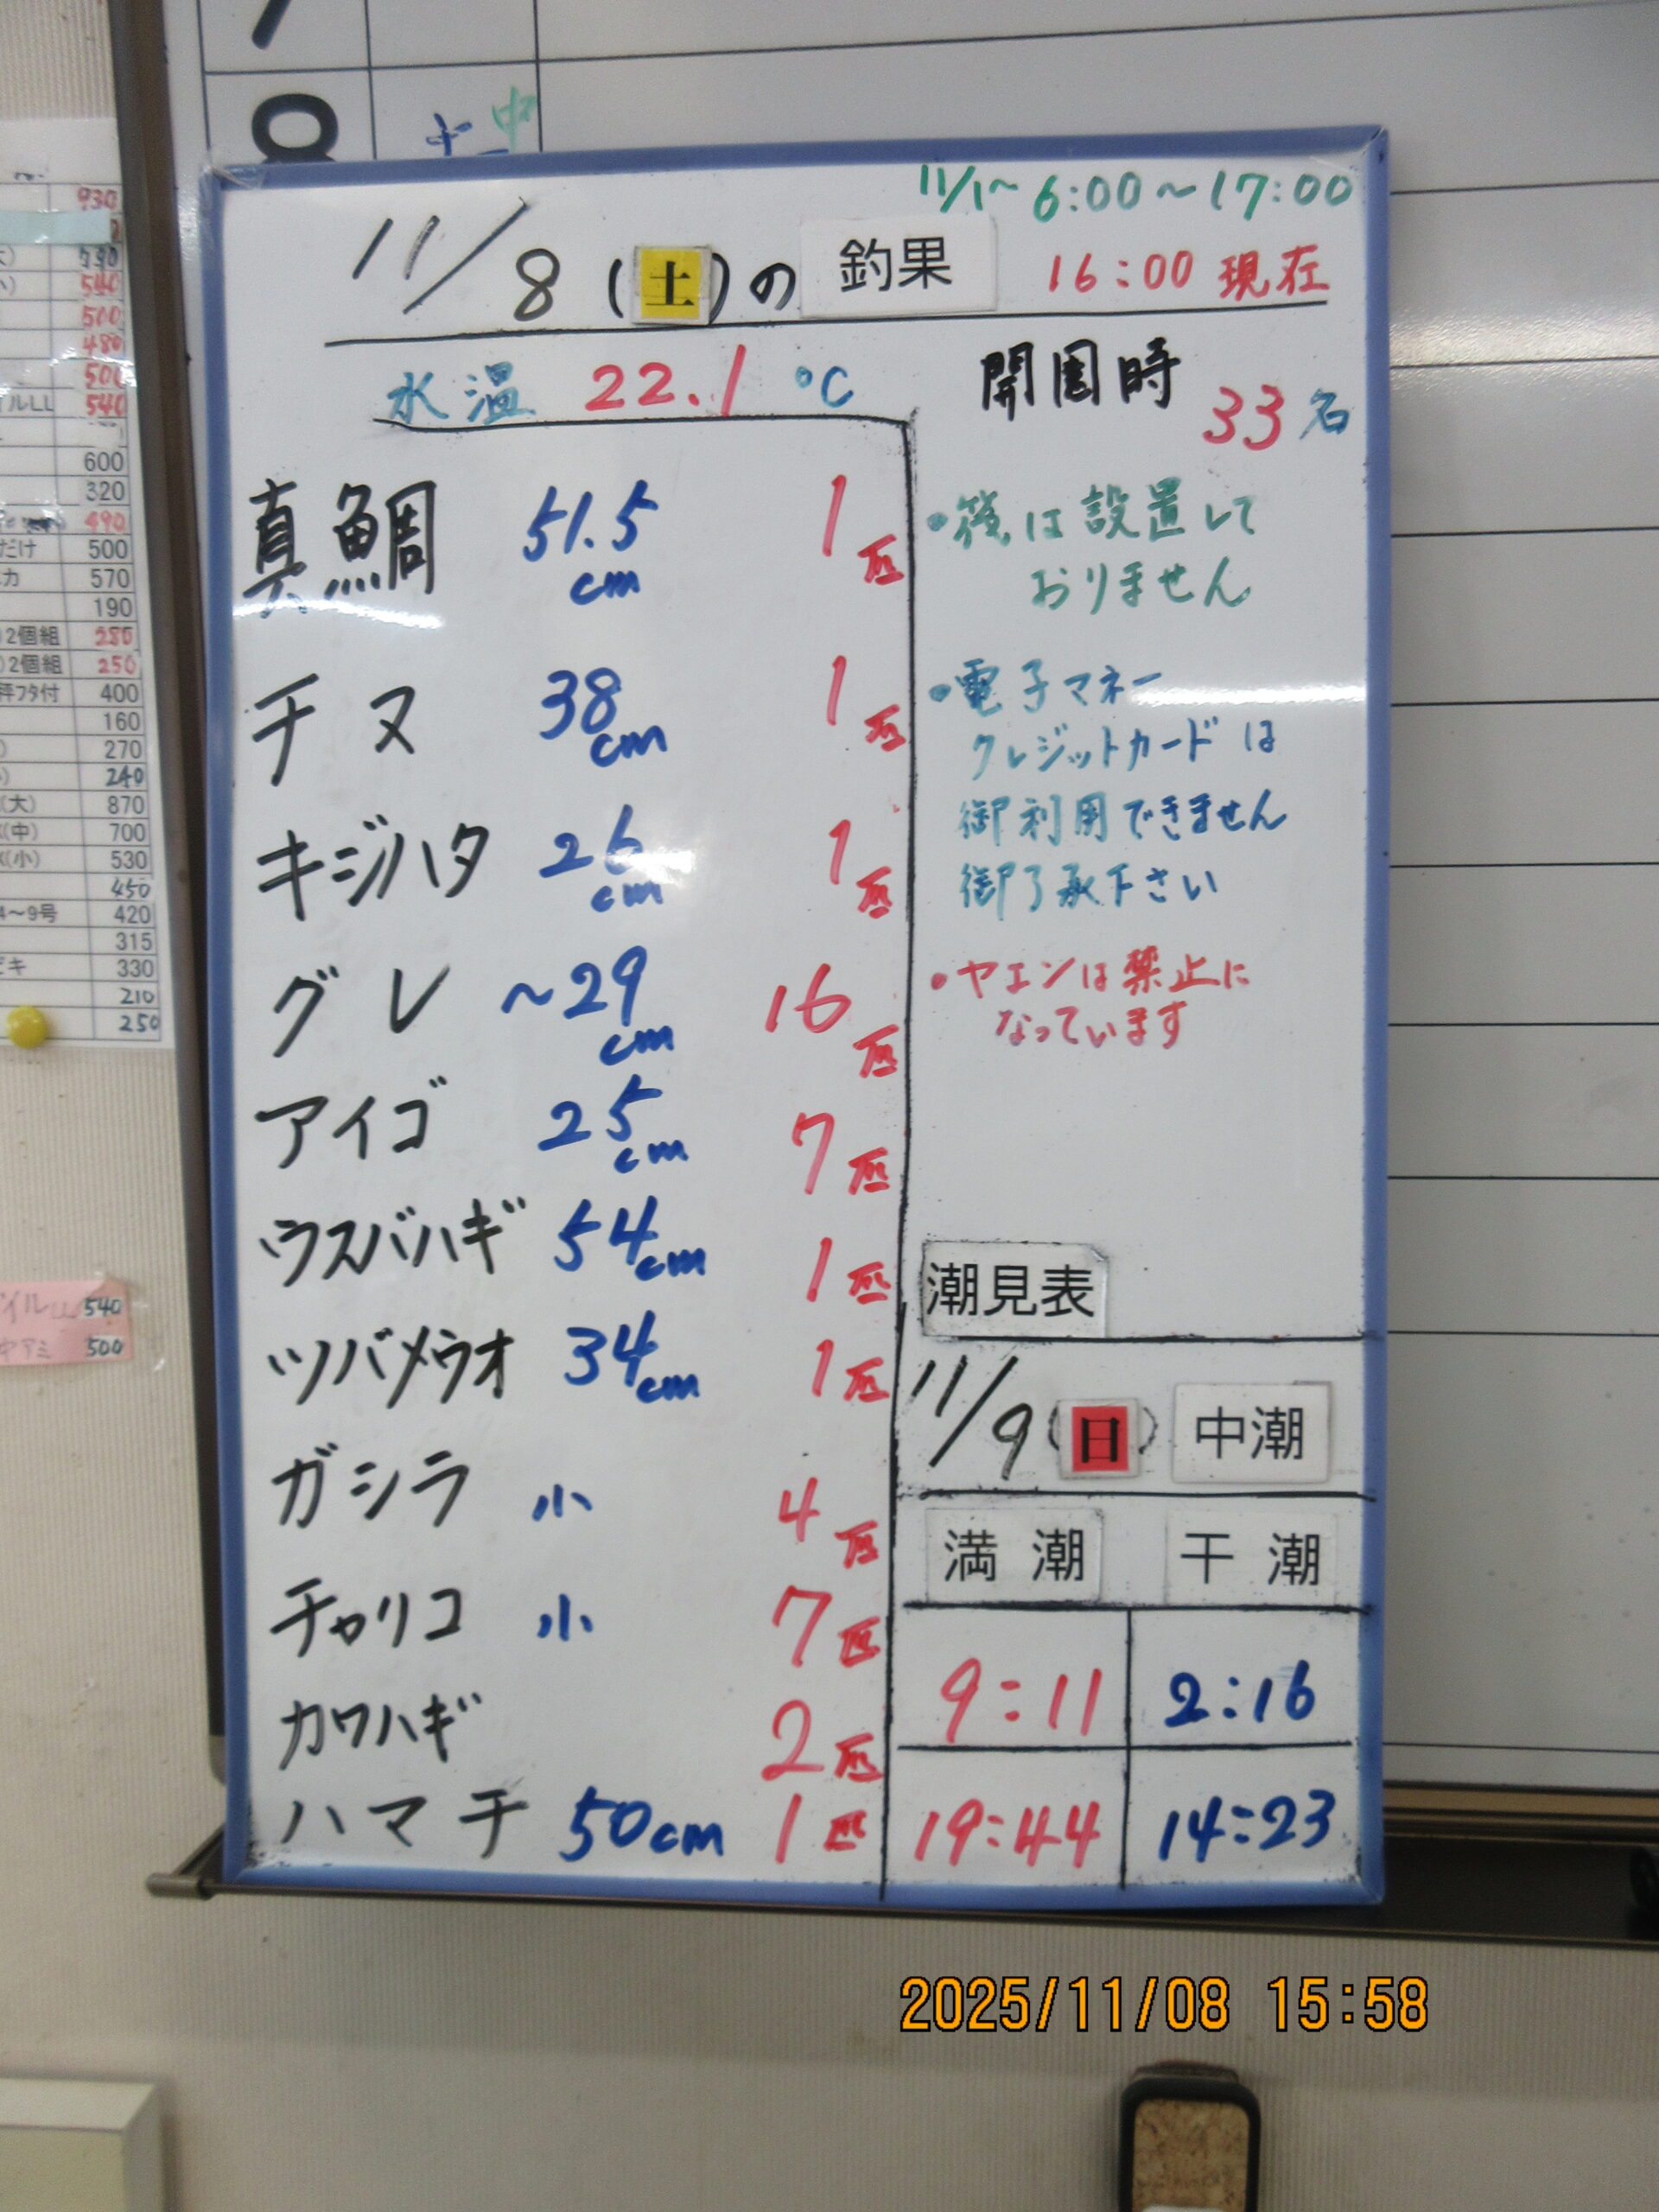 11/1~ 6:00~17:00
11/8(土)の 釣果 16:00 現在
水温 22.1 ℃
開園時 33名
真鯛 51.5cm 1匹
チヌ 38cm 1匹
キジハタ 26cm 1匹
グレ ~29cm 16匹
アイゴ 25cm 7匹
ウスバハギ 54cm 1匹
ツバメウオ 34cm 1匹
ガシラ 小 4匹
チャリコ 小 7匹
カワハギ 2匹
ハマチ 50cm 1匹
は設置して
おりません
・電子マネー
クレジットカードは
御利用できません
御了承下さい
・ヤエンは禁止に
なっています
潮見表
11/9(日) 中潮
満潮 干潮
9:11 2:16
19:44 14:23
930
540
500
480
540
600
320
490
だけ 500
570
190
2個組 280
2個組 250
400
160
270
240
(大) 870
(中) 700
(小) 530
450
4~9号 420
315
330
210
250
540
500
2025/11/08 15:58